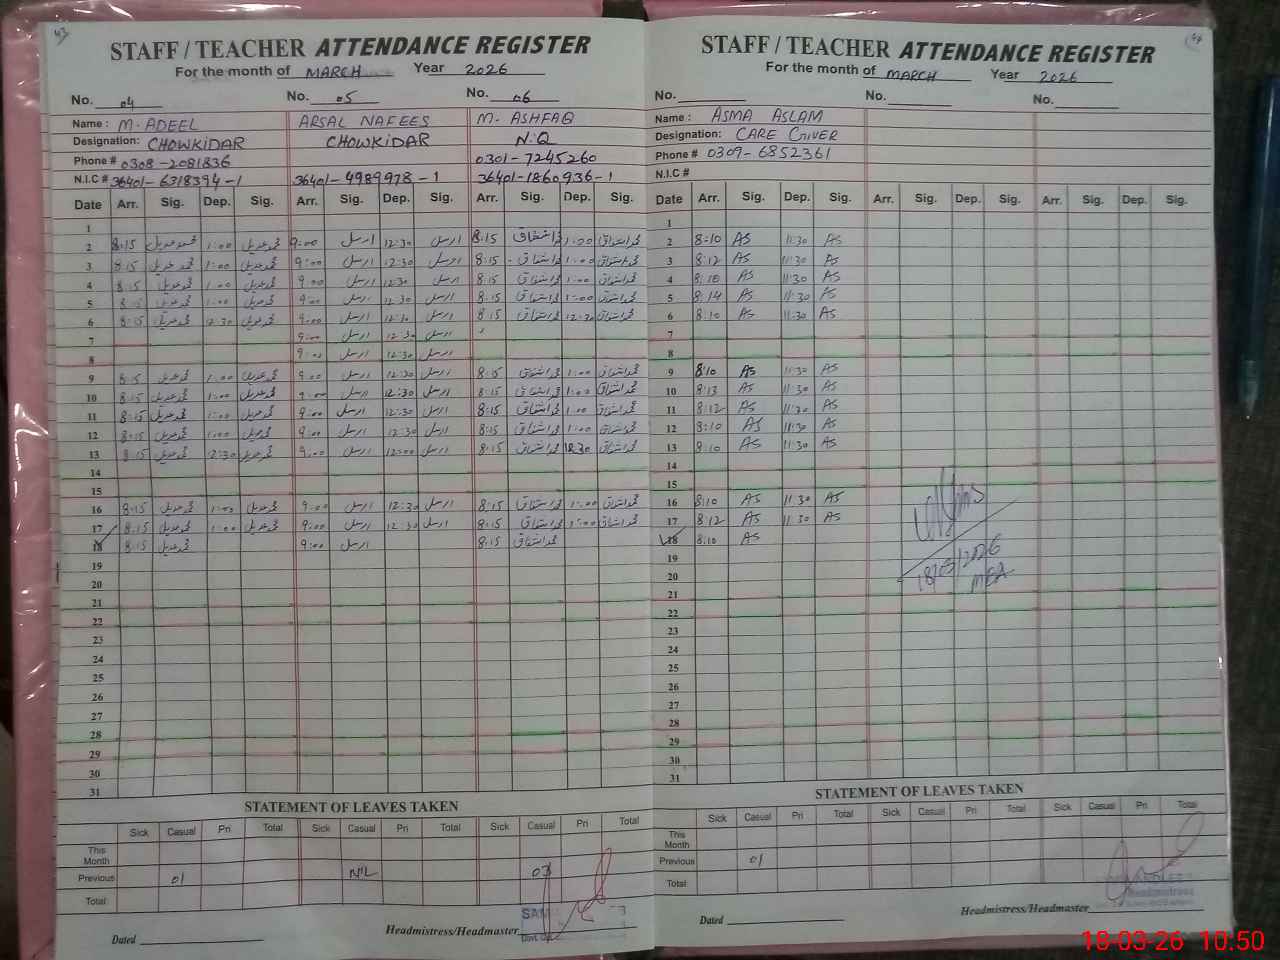 43
STAFF / TEACHER ATTENDANCE REGISTER
For the month of MARCH Year 2026
No. 04 No. 05 No. 06
Name : M. ADEEL ARSAL NAFEES M. ASHFAQ
Designation: CHOWKIDAR CHOWKIDAR N.Q
Phone # 0308-2081836 0301-7245260
N.I.C # 36401-6318394-1 36401-4989978-1 36401-1860936-1
Date Arr. Sig. Dep. Sig. Arr. Sig. Dep. Sig. Arr. Sig. Dep. Sig.
1
2 8:15 محمد عدیل 1:00 محمد عدیل 9:00 ارسل 12:30 ارسل 8:15 محمد اشفاق 1:00 محمد اشفاق
3 8:15 محمد عدیل 1:00 محمد عدیل 9:00 ارسل 12:30 ارسل 8:15 محمد اشفاق 1:00 محمد اشفاق
4 8:15 محمد عدیل 1:00 محمد عدیل 9:00 ارسل 12:30 ارسل 8:15 محمد اشفاق 1:00 محمد اشفاق
5 8:15 محمد عدیل 1:00 محمد عدیل 9:00 ارسل 12:30 ارسل 8:15 محمد اشفاق 1:00 محمد اشفاق
6 8:15 محمد عدیل 12:30 محمد عدیل 9:00 ارسل 12:30 ارسل 8:15 محمد اشفاق 12:30 محمد اشفاق
7 9:00 ارسل 12:30 ارسل
8 9:00 ارسل 12:30 ارسل
9 8:15 محمد عدیل 1:00 محمد عدیل 9:00 ارسل 12:30 ارسل 8:15 محمد اشفاق 1:00 محمد اشفاق
10 8:15 محمد عدیل 1:00 محمد عدیل 9:00 ارسل 12:30 ارسل 8:15 محمد اشفاق 1:00 محمد اشفاق
11 8:15 محمد عدیل 1:00 محمد عدیل 9:00 ارسل 12:30 ارسل 8:15 محمد اشفاق 1:00 محمد اشفاق
12 8:15 محمد عدیل 1:00 محمد عدیل 9:00 ارسل 12:30 ارسل 8:15 محمد اشفاق 1:00 محمد اشفاق
13 8:15 محمد عدیل 2:30 محمد عدیل 9:00 ارسل 12:00 ارسل 8:15 محمد اشفاق 12:30 محمد اشفاق
14
15
16 8:15 محمد عدیل 1:00 محمد عدیل 9:00 ارسل 12:30 ارسل 8:15 محمد اشفاق 1:00 محمد اشفاق
17 8:15 محمد عدیل 1:00 محمد عدیل 9:00 ارسل 12:30 ارسل 8:15 محمد اشفاق 1:00 محمد اشفاق
18 8:15 محمد عدیل 9:00 ارسل 8:15 محمد اشفاق
19
20
21
22
23
24
25
26
27
28
29
30
31
STATEMENT OF LEAVES TAKEN
Sick Casual Pri Total Sick Casual Pri Total Sick Casual Pri Total
This Month
Previous 01 NIL
Total:
Headmistress/Headmaster
Dated
44
STAFF / TEACHER ATTENDANCE REGISTER
For the month of MARCH Year 2026
No. No. No.
Name : ASMA ASLAM
Designation: CARE GIVER
Phone # 0309-6852361
N.I.C #
Date Arr. Sig. Dep. Sig. Arr. Sig. Dep. Sig. Arr. Sig. Dep. Sig.
1
2 8:10 AS 11:30 AS
3 8:12 AS 11:30 AS
4 8:10 AS 11:30 AS
5 8:14 AS 11:30 AS
6 8:10 AS 11:30 AS
7
8
9 8:10 AS 11:30 AS
10 8:13 AS 11:30 AS
11 8:12 AS 11:30 AS
12 8:10 AS 11:30 AS
13 8:10 AS 11:30 AS
14
15
16 8:10 AS 11:30 AS
17 8:12 AS 11:30 AS
18 8:10 AS
19
20
21
22
23
24
25
26
27
28
29
30
31
18/03/2026
MEA
STATEMENT OF LEAVES TAKEN
Sick Casual Pri Total Sick Casual Pri Total Sick Casual Pri Total
This Month
Previous 01
Total:
Headmistress
Headmistress/Headmaster
Dated
18-03-26 10:50